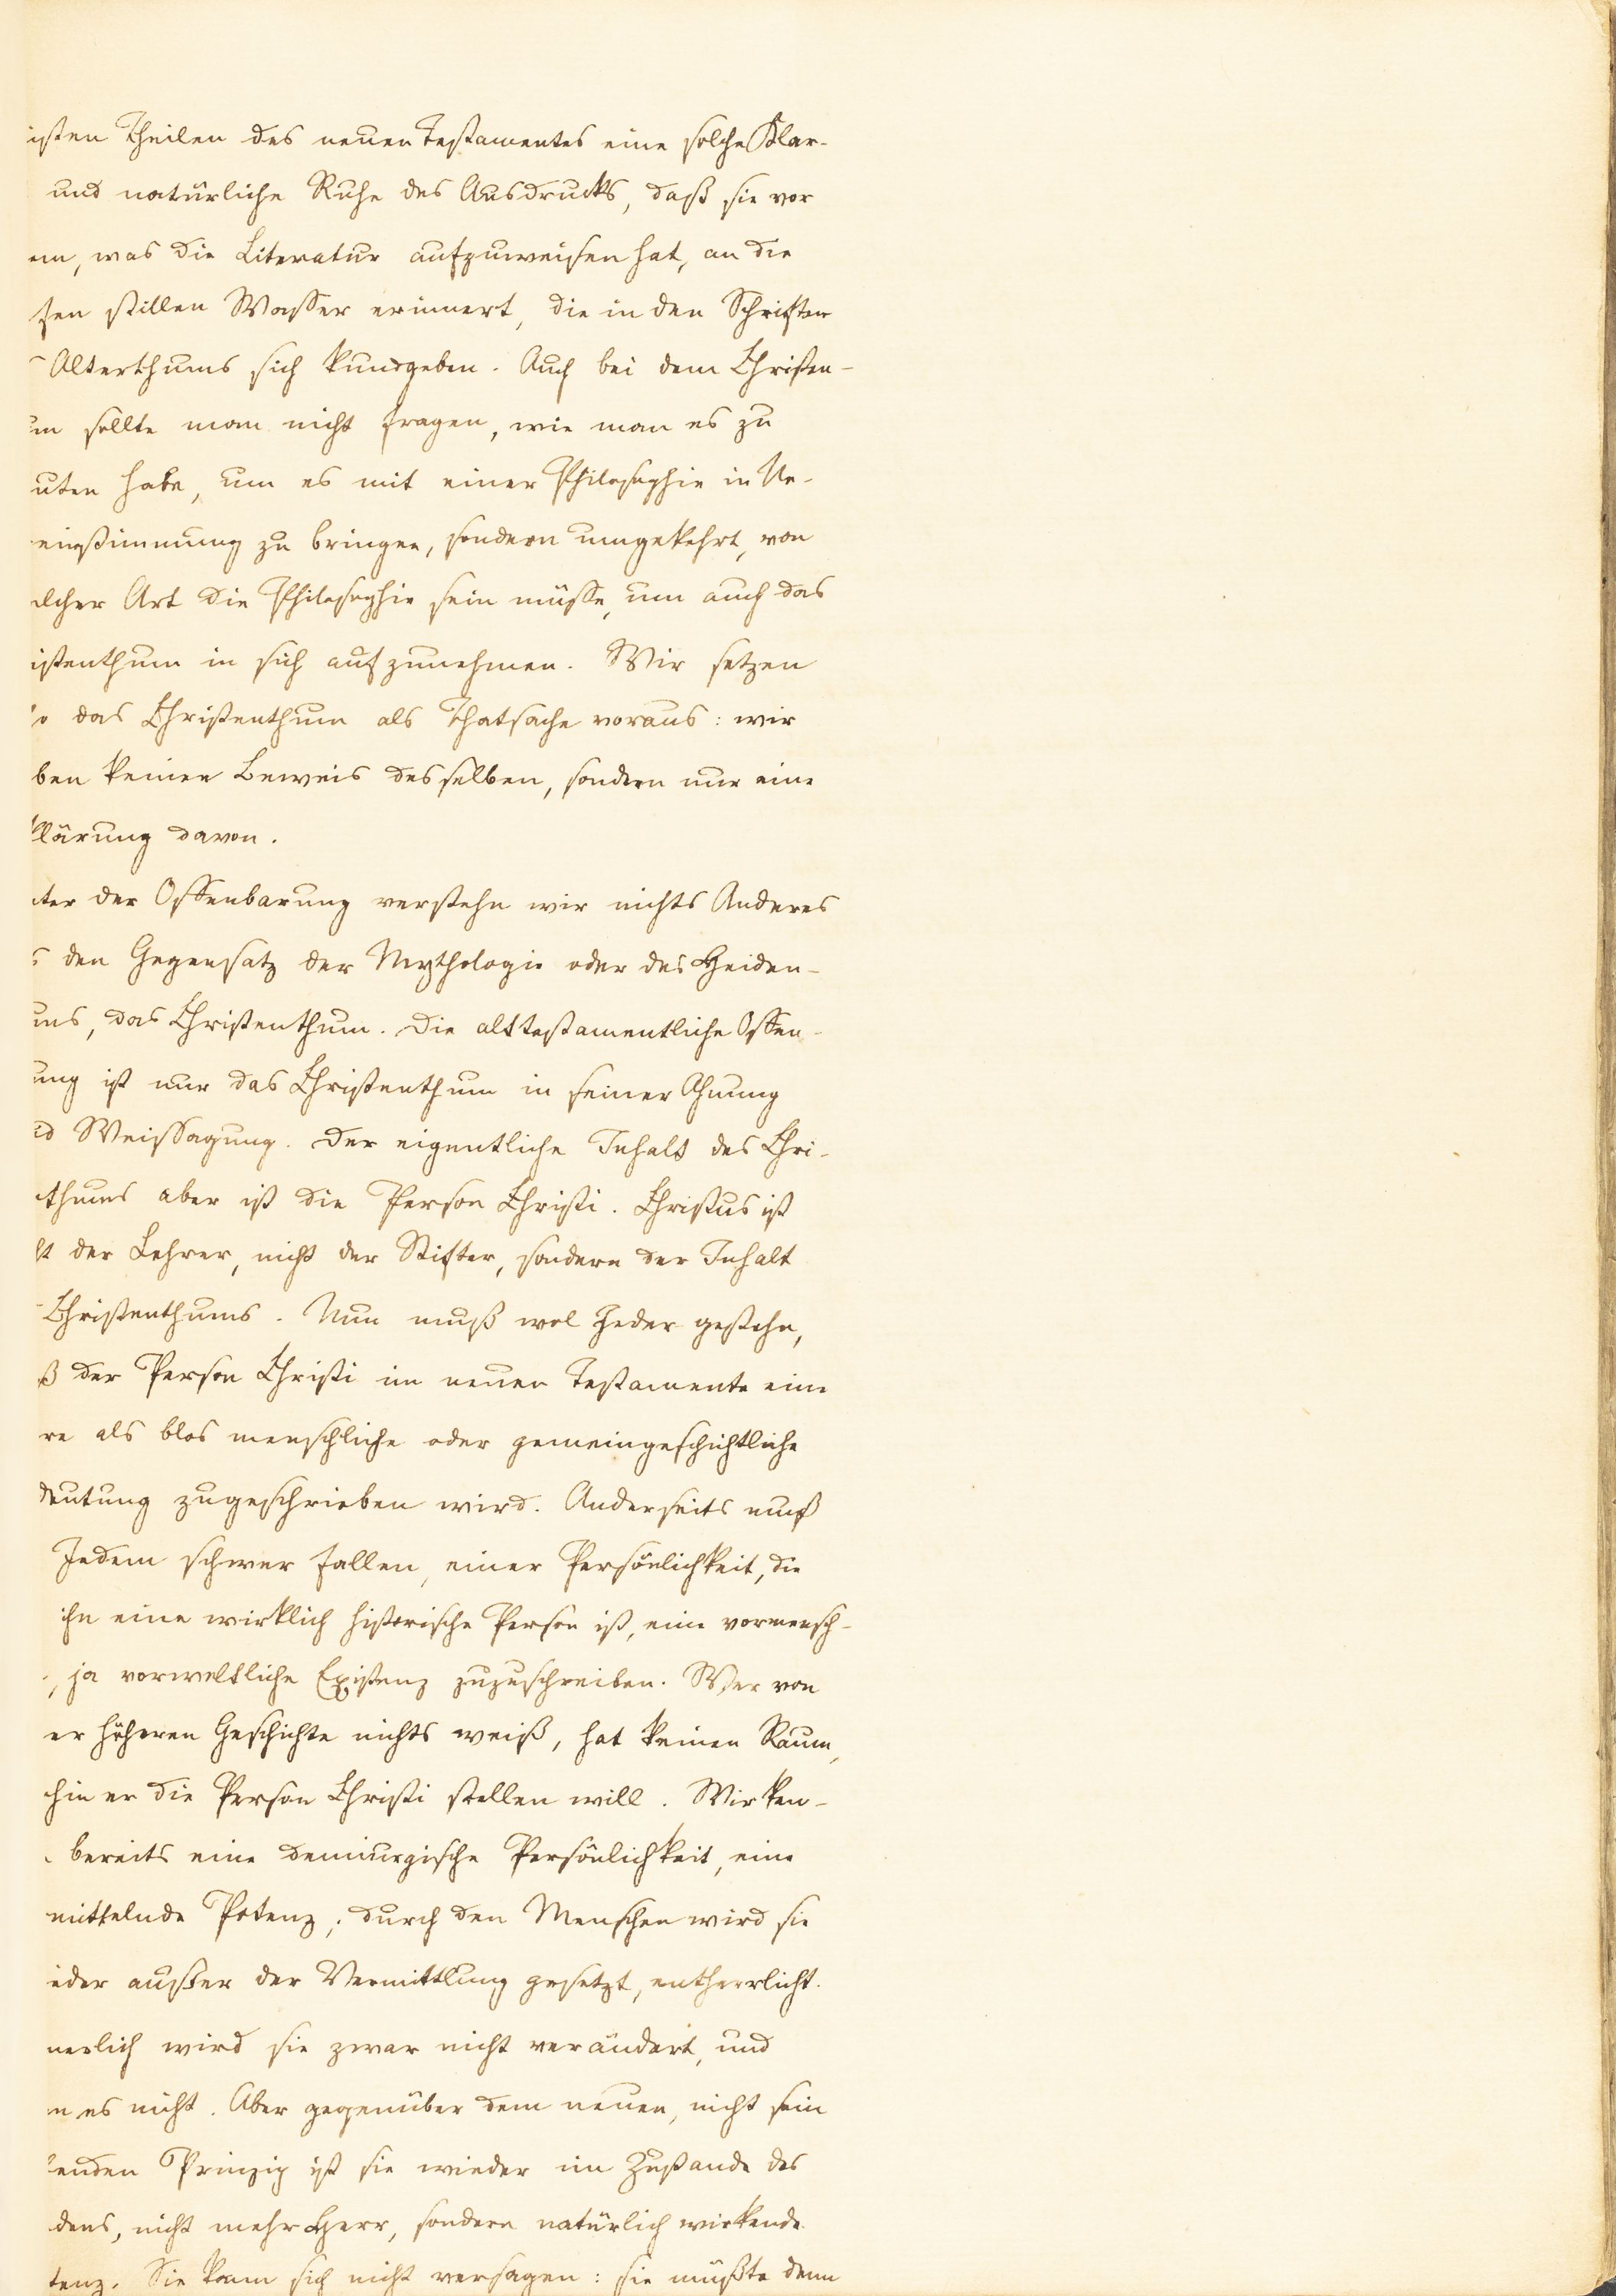 isten Theilen des neuen Testamentes eine solche Klar-
und natürliche Ruhe des Ausdrucks, daß sie vor
em, was die Literatur aufzuweisen hat, an die
fen stillen Wasser erinnert, die in den Schriften
Alterthums sich kundgeben. Auch bei dem Christen-
um sollte man nicht fragen, wie man es zu
uten habe, um es mit einer Philosophie in Ue-
einstimmung zu bringen, sondern umgekehrt, von
elcher Art die Philosophie sein müsse, um auch das
istenthum in sich aufzunehmen. Wir setzen
o das Christenthum als Thatsache voraus: wir
ben keinen Beweis desselben, sondern nur eine
klärung davon.
ter der Offenbarung verstehn wir nichts Anderes
s den Gegensatz der Mythologie oder des Heiden-
ums, das Christenthum. Die alttestamentliche Offen-
ung ist nur das Christenthum in seiner Ahnung
nd Weissagung. Der eigentliche Inhalt des Chri-
thums aber ist die Person Christi. Christus ist
ht der Lehrer, nicht der Stifter, sondern der Inhalt
Christenthums. Nun muß wol Jeder gestehn,
ß der Person Christi im neuen Testamente eine
re als blos menschliche oder gemeingeschichtliche
deutung zugeschrieben wird. Anderseits muß
Jedem schwer fallen, einer Persönlichkeit, die
ihn eine wirklich historische Person ist, eine vormensch-
, ja vorweltliche Existenz zuzuschreiben. Wer von
er höheren Geschichte nichts weiß, hat keinen Raum,
hin er die Person Christi stellen will. Wir ken-
bereits eine demiurgische Persönlichkeit, eine
mittelnde Potenz; durch den Menschen wird sie
ieder außer der Vermittlung gesetzt, entherrlicht.
nerlich wird sie zwar nicht verändert, und
n es nicht. Aber gegenüber dem neuen, nicht sein
lenden Prinzip ist sie wieder im Zustande des
dens, nicht mehr Herr, sondern natürlich wirkende
tenz. Sie kann sich nicht versagen: sie müßte denn